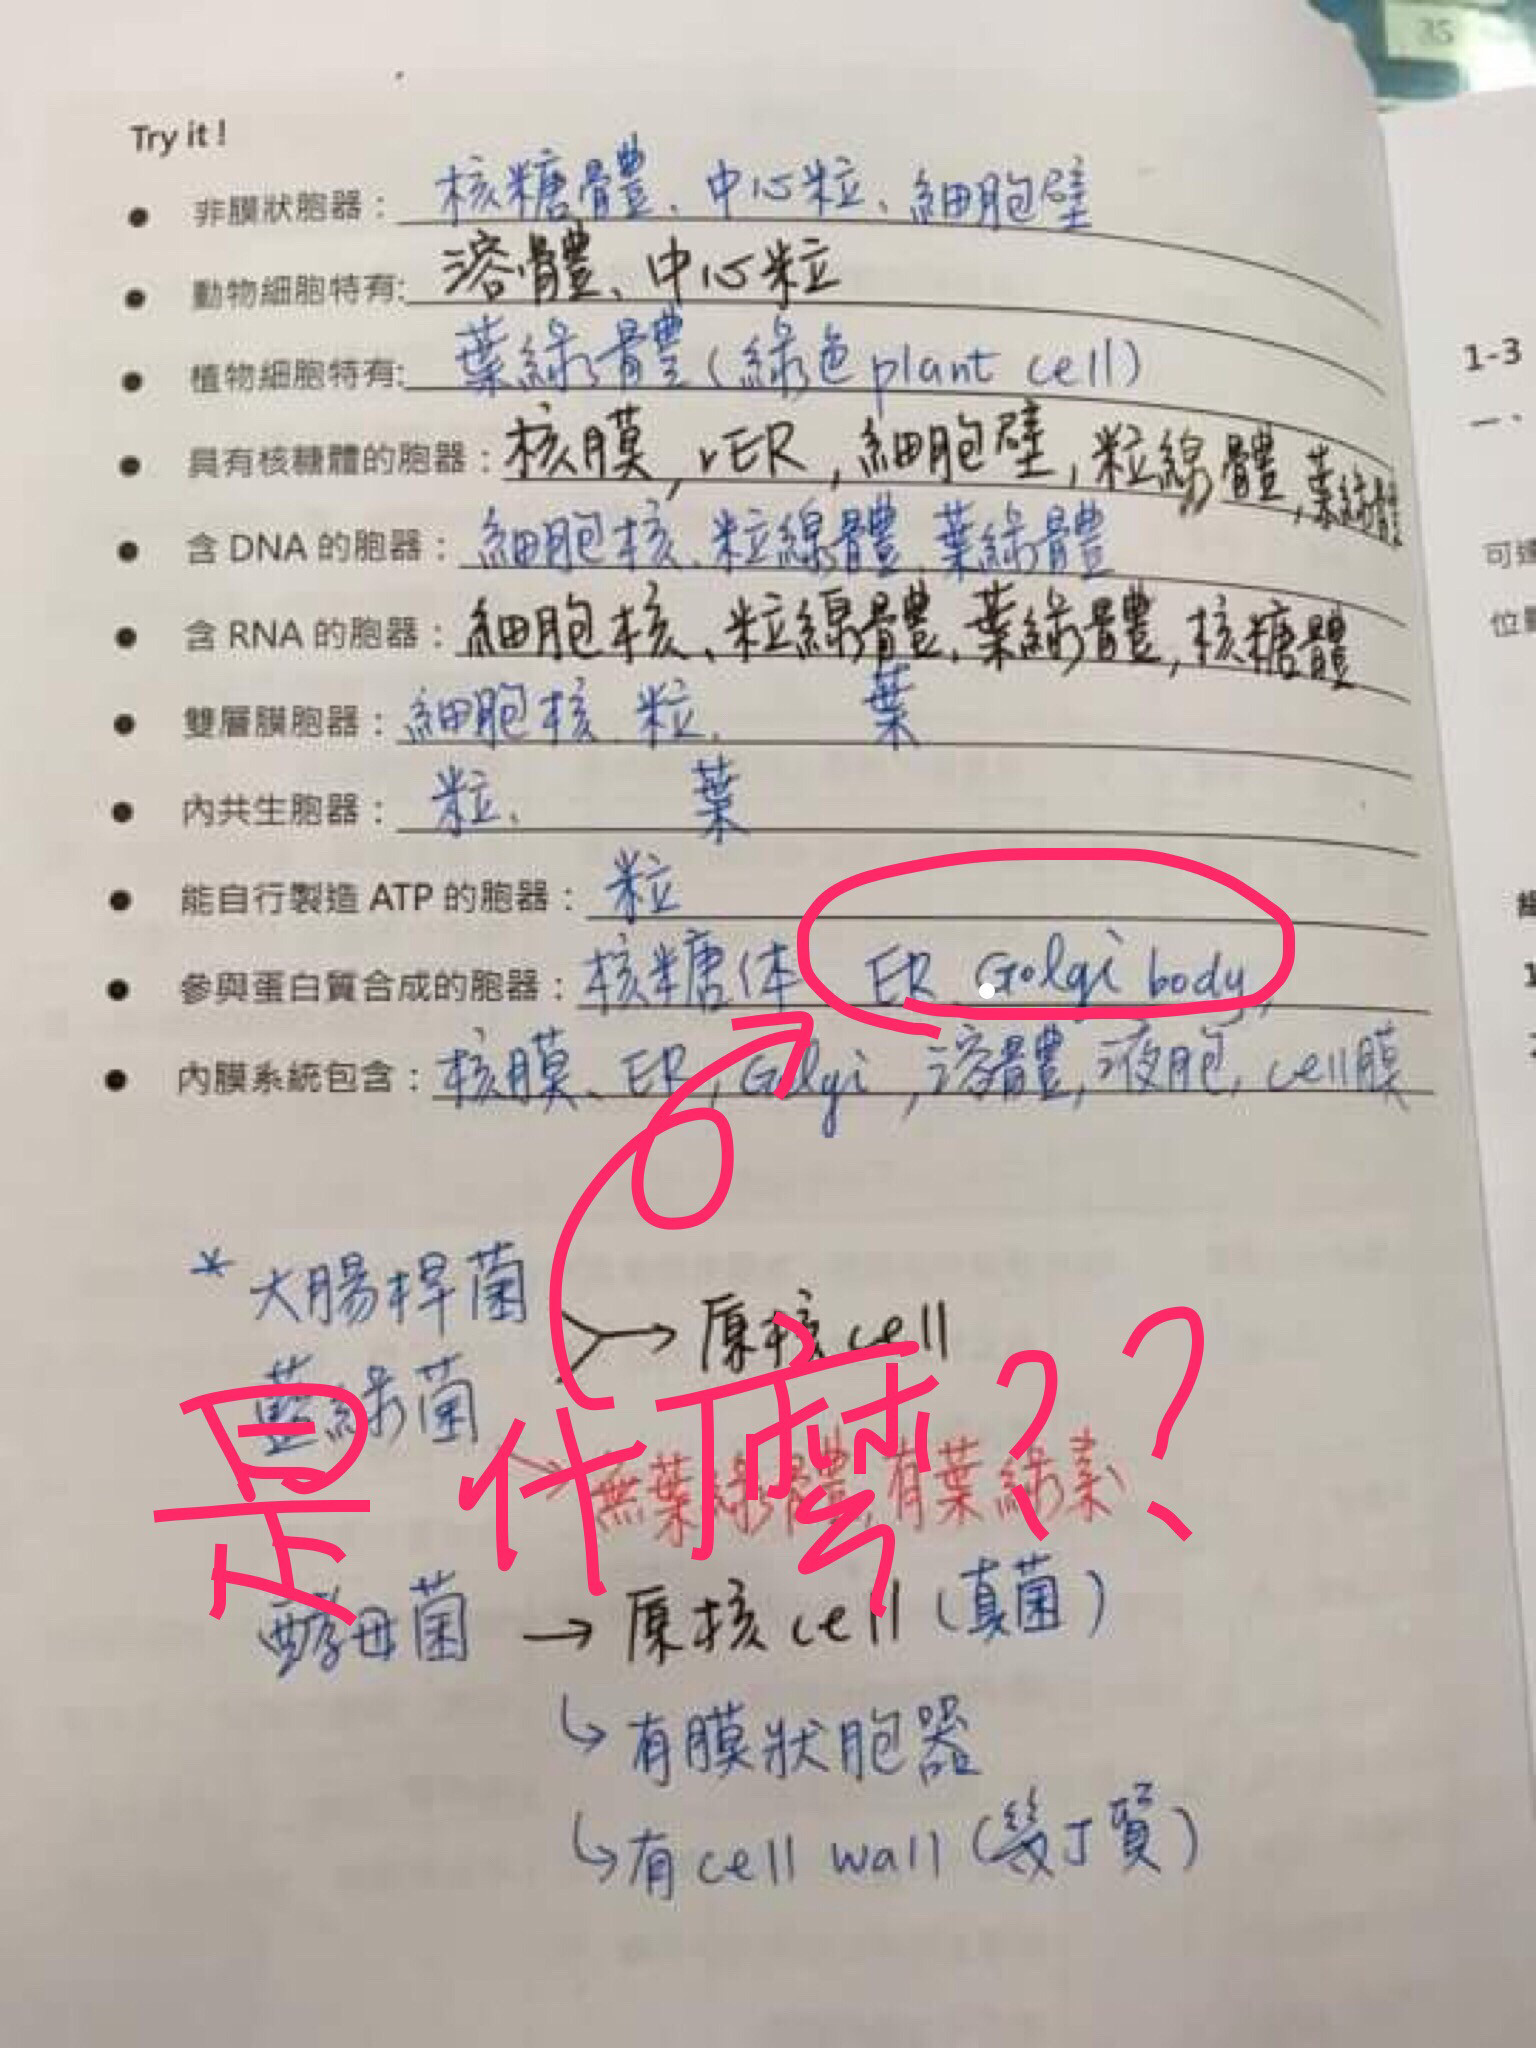 35
Try it!
● 非膜狀胞器：核糖體、中心粒、細胞壁
● 動物細胞特有:溶體、中心粒
● 植物細胞特有:葉綠體(綠色plant cell)
● 具有核糖體的胞器：核膜,rER,細胞壁,粒線體,葉綠體
● 含 DNA 的胞器：細胞核、粒線體、葉綠體
● 含 RNA 的胞器：細胞核、粒線體、葉綠體,核糖體
● 雙層膜胞器：細胞核、粒、葉
● 內共生胞器：粒、葉
● 能自行製造 ATP 的胞器：粒
● 參與蛋白質合成的胞器：核糖体 ER、Golgi body,
● 內膜系統包含：核膜、ER, Golgi,溶體,液胞, cell膜
* 大腸桿菌
藍綠菌
→原核cell
是什麼??
無葉綠體,有葉綠素
酵母菌 → 原核cell(真菌)
↳有膜狀胞器
↳有cell wall(幾丁質)
1-3
一、
可達
1